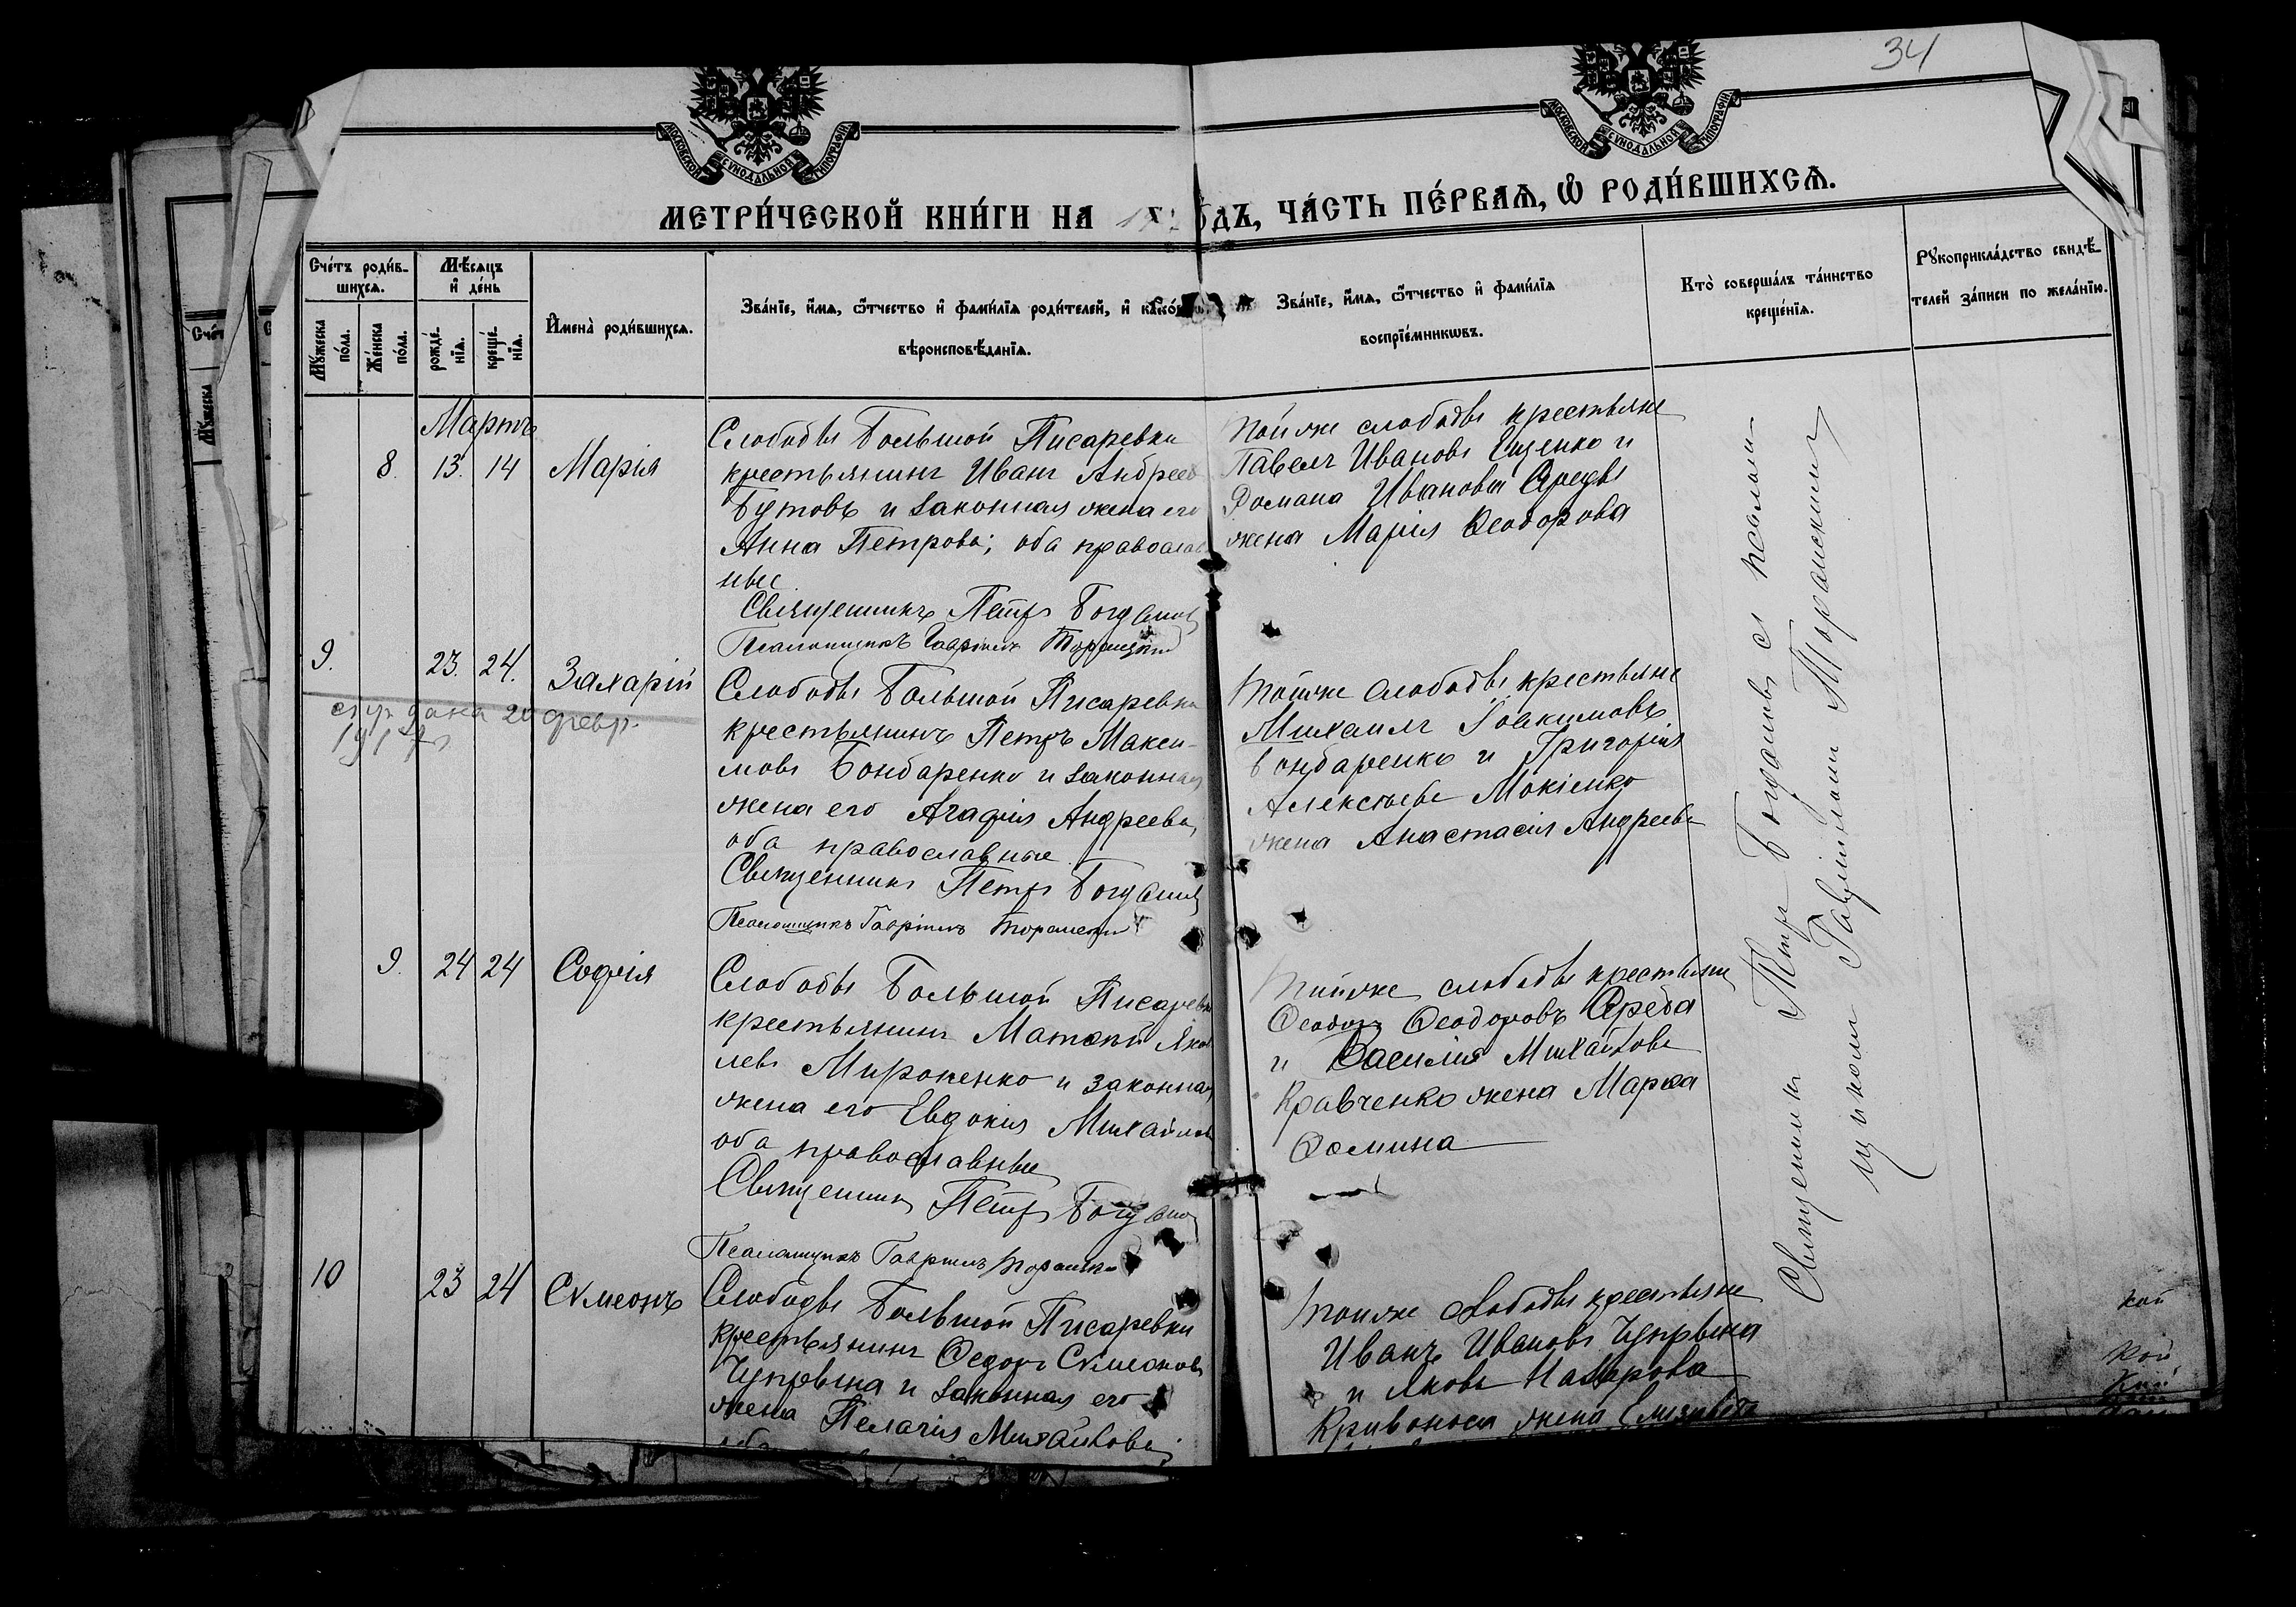 34
МОСКОВСКОЙ СѴНОДАЛЬНОЙ ТИПОГРАФІИ
МОСКОВСКОЙ СѴНОДАЛЬНОЙ ТИПОГРАФІИ
МЕТРИ́ЧЕСКОЙ КНИ́ГИ НА ОДЪ, ЧА́СТЬ ПЕ́РВАѦ, Ѡ РОДИ́ВШИХСѦ.
Сче́тъ роди́в-
шихсѧ.
Мꙋ́жеска по́ла.
Же́нска по́ла.
Мѣ́сѧцъ
и҆ де́нь
рожде́-
нїѧ.
креще́-
нїѧ.
И҆мена̀ роди́вшихсѧ.
Зва́нїе, и҆́мѧ, ѻ҆́тчество и҆ фами́лїѧ роди́телей, и҆
вѣроисповѣ́данїѧ.
Зва́нїе, и҆́мѧ, ѻ҆́тчество и҆ фами́лїѧ
воспрїе́мникѡвъ.
Кто̀ соверша́лъ та́инство
креще́нїѧ.
Рꙋкоприкла́дство свидѣ́-
телей за́писи по жела́нїю.
Мартъ
8. 13. 14 Марія
Слободы Большой Писаревки
крестьянинъ Иванъ Андреев
Бутовъ и законная жена его
Анна Петрова; оба православ
ные
Священникъ Петръ Богданов
Псаломщикъ Гавріилъ
Тойже слободы крестьяне
Павелъ Ивановъ Ещенко и
Романа Иванова Ареды
жена Марія Ѳеодорова
9. 23. 24. Захарій
дана 20 февр.
191
Слободы Большой Писаревки
крестьянинъ Петръ Макси-
мовъ Бондаренко и законная
жена его Агафія Андреева,
оба православные
Священникъ Петръ Богданов
Псаломщикъ Гавріилъ
Тойже слободы крестьяне
Михаилъ Іоакимовъ
Бондаренко и Григорія
Алексѣева Мокіенко
жена Анастасія Андреева
9. 24 24 Софія
Слободы Большой Писаревки
крестьянинъ Матѳѣй Яков
левъ Мироненко и законная
жена его Евдокія Михайлов
оба православные
Священникъ Петръ Богданов
Псаломщикъ Гавріилъ
Тойже слободы крестьяне
Ѳеодоръ Ѳеодоровъ Ареда
и Василія Михайлова
Кравченко жена Марѳа
Ѳомина
10 23 24 Сѵмеонъ
Слободы Большой Писаревки
крестьянинъ Ѳедоръ Сѵмеоновъ
Чупрына и законная его
жена Пелагія Михайлова;
Тойже слободы крестьяне
Иванъ Ивановъ Чупрына
и Якова Назарова
Кривоноса жена Елизавета
Священникъ Петръ Богдановъ съ псалом-
щикомъ Гавріиломъ
кой
кой